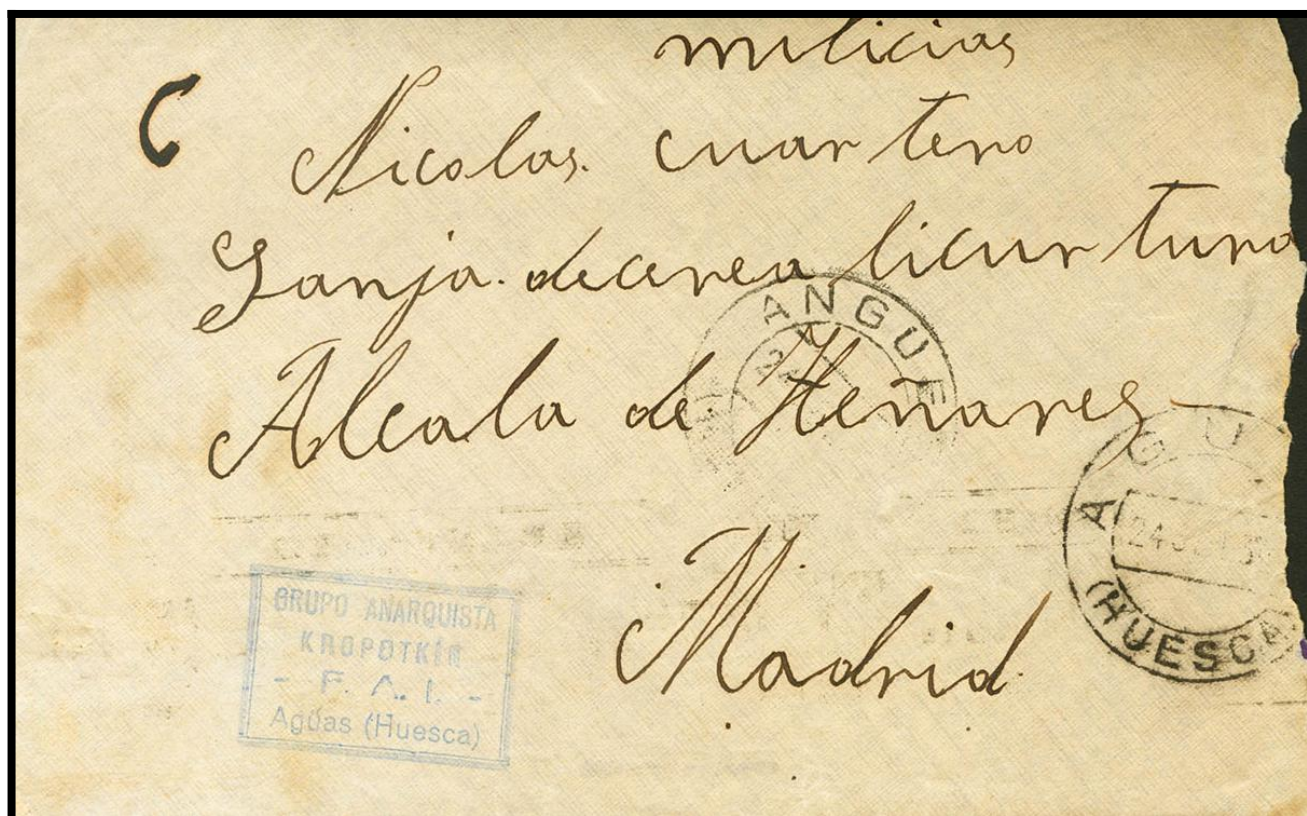 milicias
C Nicolas. cuartero
Granja. decerea licurtura
Alcala de Heñares
Madrid
ANGUE
24
AGU
24
(HUESCA)
GRUPO ANARQUISTA
KROPOTKIN
- F. A. I. -
Aguas (Huesca)